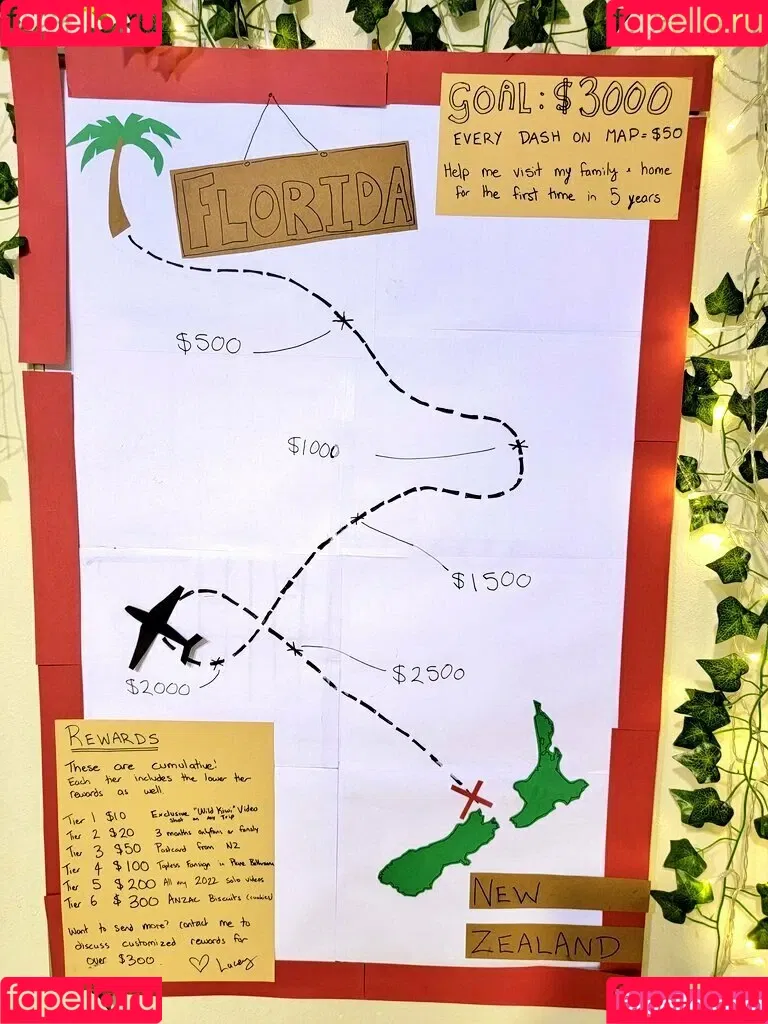 fapello.ru
fapello.ru
GOAL: $3000
EVERY DASH ON MAP = $50
Help me visit my family + home
for the first time in 5 years
FLORIDA
$500
$1000
$1500
$2000
$2500
REWARDS
These are cumulative!
Each tier includes the lower tier
rewards as well.
Tier 1 $10 Exclusive "Wild Kiwi" Video
Shot on my Trip
Tier 2 $20 3 months onlyfans or fansly
Tier 3 $50 Postcard from NZ
Tier 4 $100 Topless Fansign in
Tier 5 $200 All my 2022 Solo videos
Tier 6 $300 ANZAC Biscuits (cookies)
Want to send more? Contact me to
discuss customized rewards for
over $300. Lucey
NEW
ZEALAND
fapello.ru
fapello.ru